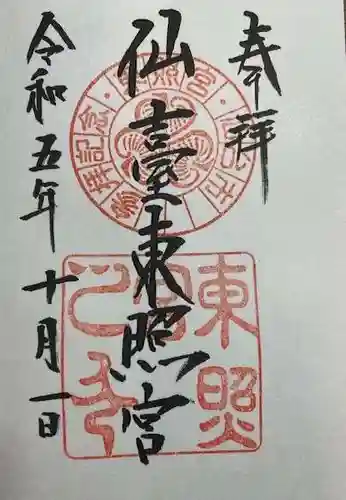 奉拝
仙臺東照宮
令和五年十月一日
東照
宮